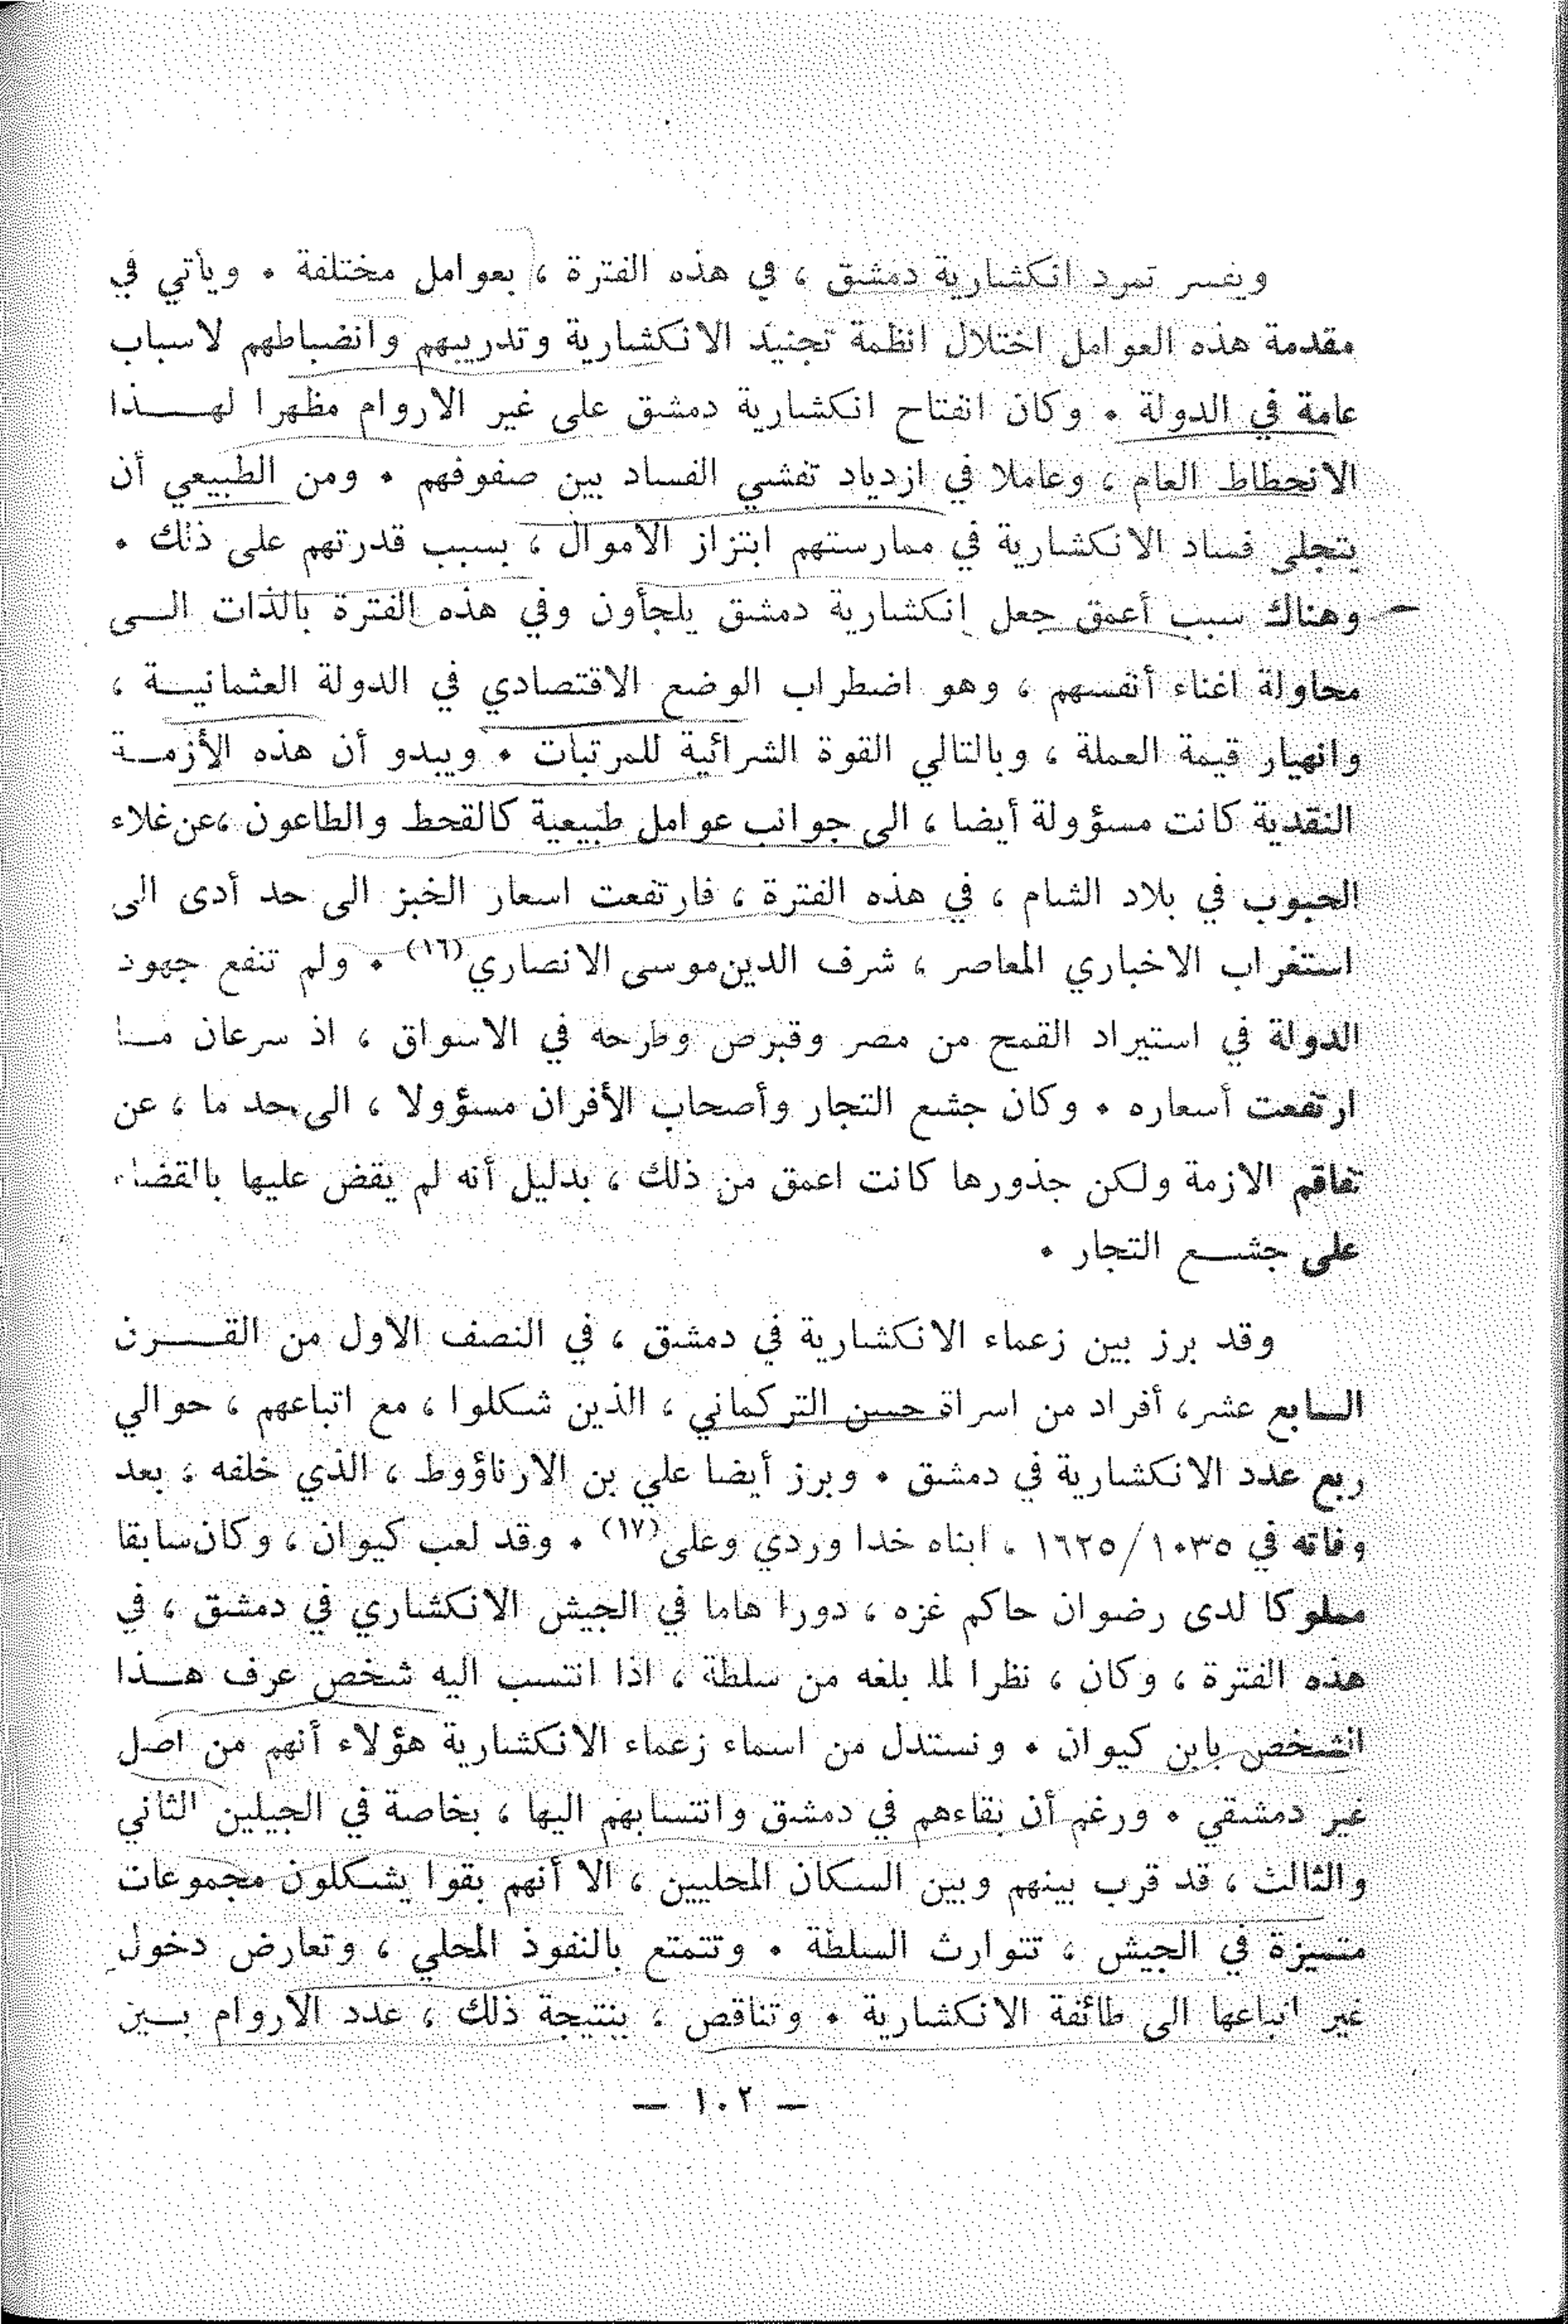 ويفسر تمرد انكشارية دمشق ، في هذه الفترة ، بعوامل مختلفة . ويأتي في
مقدمة هذه العوامل اختلال انظمة تجنيد الانكشارية وتدريبهم وانضباطهم لاسباب
عامة في الدولة . وكان انفتاح انكشارية دمشق على غير الاروام مظهرا لهـــذا
الانحطاط العام ، وعاملا في ازدياد تفشي الفساد بين صفوفهم . ومن الطبيعي أن
يتجلى فساد الانكشارية في ممارستهم ابتزاز الاموال ، بسبب قدرتهم على ذلك .
وهناك سبب أعمق جعل إنكشارية دمشق يلجأون وفي هذه الفترة بالذات الـى
محاولة اغناء أنفسهم ، وهو اضطراب الوضع الاقتصادي في الدولة العثمانيـة ،
وانهيار قيمة العملة ، وبالتالي القوة الشرائية للمرتبات . ويبدو أن هذه الأزمـة
النقدية كانت مسؤولة أيضا ، الى جوانب عوامل طبيعية كالقحط والطاعون ،عن غلاء
الحبوب في بلاد الشام ، في هذه الفترة ، فارتفعت اسعار الخبز الى حد أدى الى
استغراب الاخباري المعاصر ، شرف الدين موسى الانصاري(١٦) . ولم تنفع جهود
الدولة في استيراد القمح من مصر وقبرص وطرحه في الاسواق ، اذ سرعان مـا
ارتفعت أسعاره . وكان جشع التجار وأصحاب الأفران مسؤولا ، الى حد ما ، عن
تفاقم الازمة ولكن جذورها كانت اعمق من ذلك ، بدليل أنه لم يقض عليها بالقضاء
على جشـــع التجار .
وقد برز بين زعماء الانكشارية في دمشق ، في النصف الاول من القــــرن
السابع عشر، أفراد من اسراة حسن التركماني ، الذين شكلوا ، مع اتباعهم ، حوالي
ربع عدد الانكشارية في دمشق . وبرز أيضا علي بن الارناؤوط ، الذي خلفه ، بعد
وفاته في ١٠٣٥/١٦٢٥ ، ابناه خدا وردي وعلي(١٧) . وقد لعب كيوان ، وكان سابقا
مملوكا لدى رضوان حاكم غزه ، دورا هاما في الجيش الانكشاري في دمشق ، في
هذه الفترة ، وكان ، نظرا لما بلغه من سلطة ، اذا انتسب اليه شخص عرف هــذا
الشخص بابن كيوان . ونستدل من اسماء زعماء الانكشارية هؤلاء أنهم من اصل
غير دمشقي . ورغم أن بقاءهم في دمشق وانتسابهم اليها ، بخاصة في الجيلين الثاني
والثالث ، قد قرب بينهم وبين السكان المحليين ، الا أنهم بقوا يشكلون مجموعات
متميزة في الجيش ، تتوارث السلطة . وتتمتع بالنفوذ المحلي ، وتعارض دخول
غير اتباعها الى طائفة الانكشارية . وتناقص ، بنتيجة ذلك ، عدد الاروام بـين
— ١٠٢ —